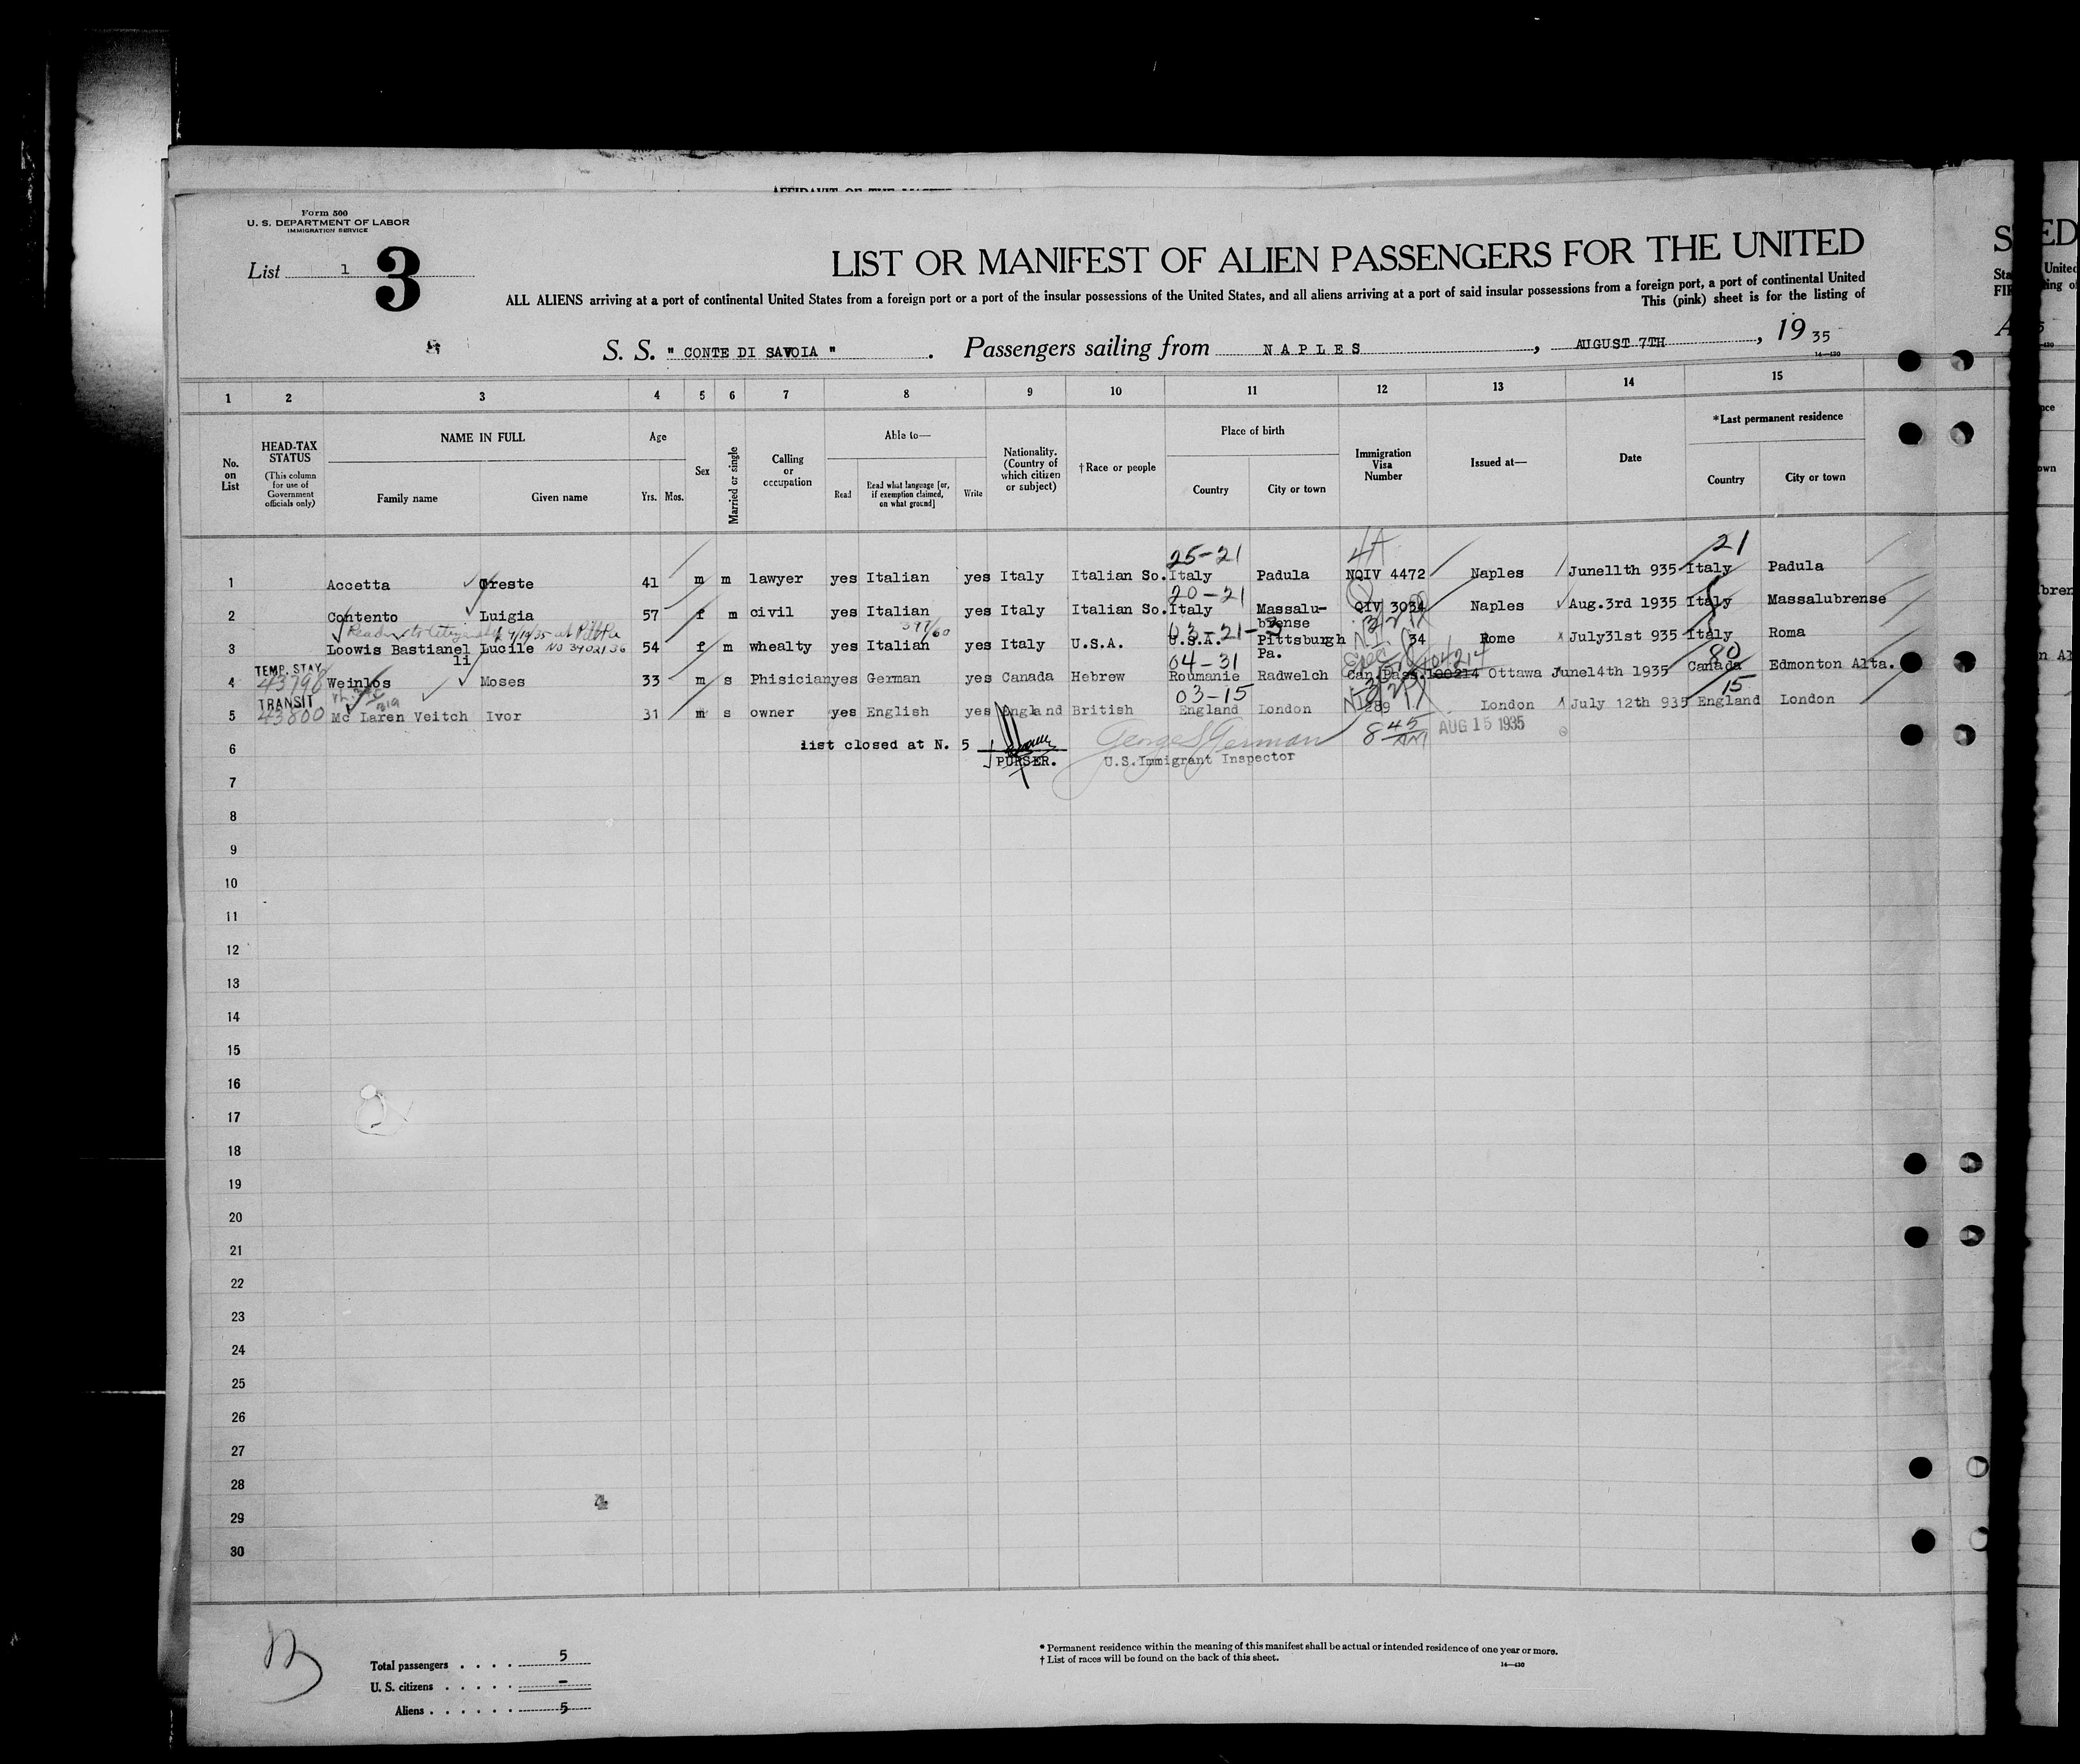 AFFIDAVIT OF THE MASTER
Form 500
U. S. DEPARTMENT OF LABOR
IMMIGRATION SERVICE
List 1 3
LIST OR MANIFEST OF ALIEN PASSENGERS FOR THE UNITED
ALL ALIENS arriving at a port of continental United States from a foreign port or a port of the insular possessions of the United States, and all aliens arriving at a port of said insular possessions from a foreign port, a port of continental United
This (pink) sheet is for the listing of
S. S. " CONTE DI SAVOIA " . Passengers sailing from NAPLES , AUGUST 7TH , 19 35
14—430
1 2 3 4 5 6 7 8 9 10 11 12 13 14 15
No. on List
HEAD-TAX STATUS
(This column for use of Government officials only)
NAME IN FULL
Family name Given name
Age
Yrs. Mos.
Sex
Married or single
Calling or occupation
Able to—
Read Read what language [or, if exemption claimed, on what ground] Write
Nationality. (Country of which citizen or subject)
†Race or people
Place of birth
Country City or town
Immigration Visa Number
Issued at—
Date
*Last permanent residence
Country City or town
25-21 4A 21
1 Accetta Oreste 41 m m lawyer yes Italian yes Italy Italian So. Italy Padula NQIV 4472 Naples June11th 935 Italy Padula
20-21
2 Contento Luigia 57 f m civil yes Italian yes Italy Italian So. Italy Massalu-brense QIV 3034 Naples Aug.3rd 1935 Italy Massalubrense
03-21-3
3 Loowis Bastianelli Lucile 54 f m whealty yes Italian yes Italy U.S.A. U.S.A. Pittsburgh Pa. 34 Rome July31st 935 Italy Roma
TEMP. STAY 04-31 104214 80
4 43798 Weinlos Moses 33 m s Phisician yes German yes Canada Hebrew Roumanie Radwelch Can.Pass.100214 Ottawa June14th 1935 Canada Edmonton Alta.
TRANSIT 03-15 15
5 43800 Mc Laren Veitch Ivor 31 m s owner yes English yes England British England London 289 London July 12th 935 England London
6 list closed at N. 5 George S German 8 45 AM AUG 15 1935
PURSER. U.S.Immigrant Inspector
7
8
9
10
11
12
13
14
15
16
17
18
19
20
21
22
23
24
25
26
27
28
29
30
Total passengers . . . . 5
U. S. citizens . . . . . –
Aliens . . . . . . 5
* Permanent residence within the meaning of this manifest shall be actual or intended residence of one year or more.
† List of races will be found on the back of this sheet.
14—430